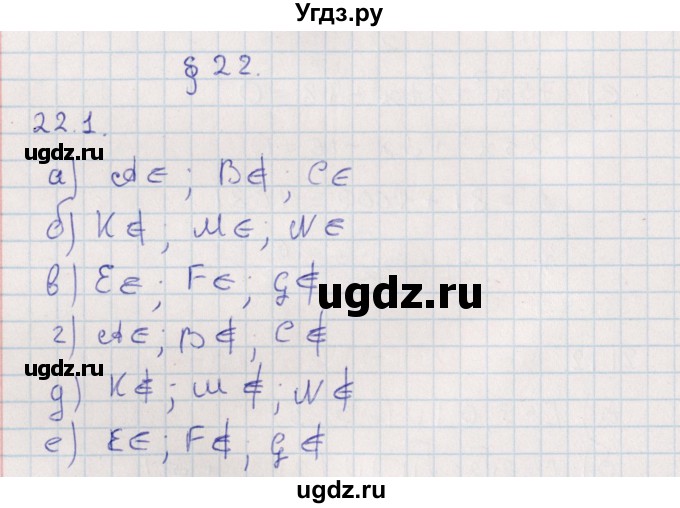 Угдз.ру
§ 22.
22.1.
ugdz.ru
а) A∈; B∉; C∈
б) K∉; M∈; N∈
в) E∈; F∈; G∉
ugdz.ru
г) A∈; B∉; C∉
ugdz.ru
д) K∉; M∉; N∉
е) E∈; F∉; G∉
ugdz.ru
ugdz.ru